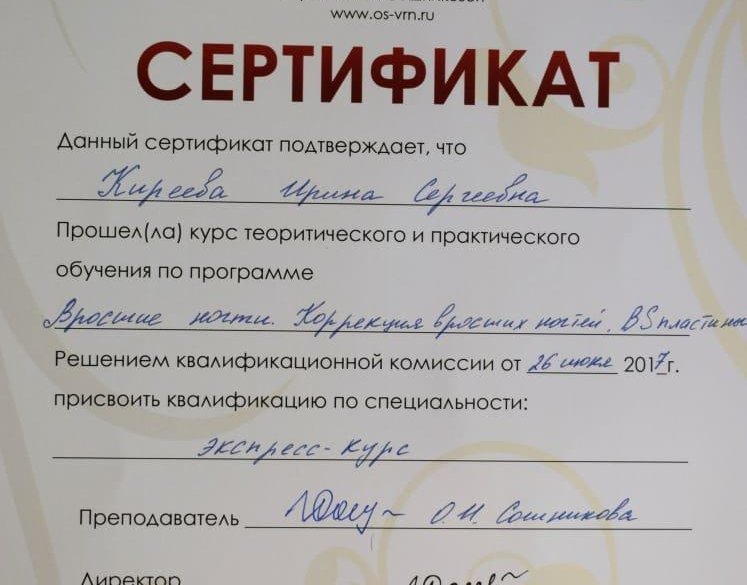 www.os-vrn.ru
СЕРТИФИКАТ
Данный сертификат подтверждает, что
Киреева Ирина Сергеевна
Прошел(ла) курс теоритического и практического
обучения по программе
Вросшие ногти. Коррекция вросших ногтей. BS пластины
Решением квалификационной комиссии от 26 июля 2017г.
присвоить квалификацию по специальности:
экспресс-курс
Преподаватель О.Н. Сошникова
Директор